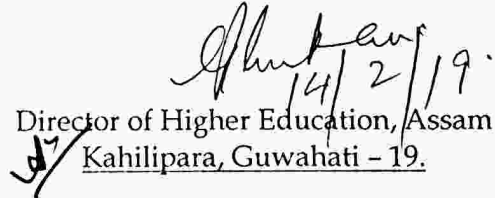 14/2/19.
Director of Higher Education, Assam
Kahilipara, Guwahati – 19.